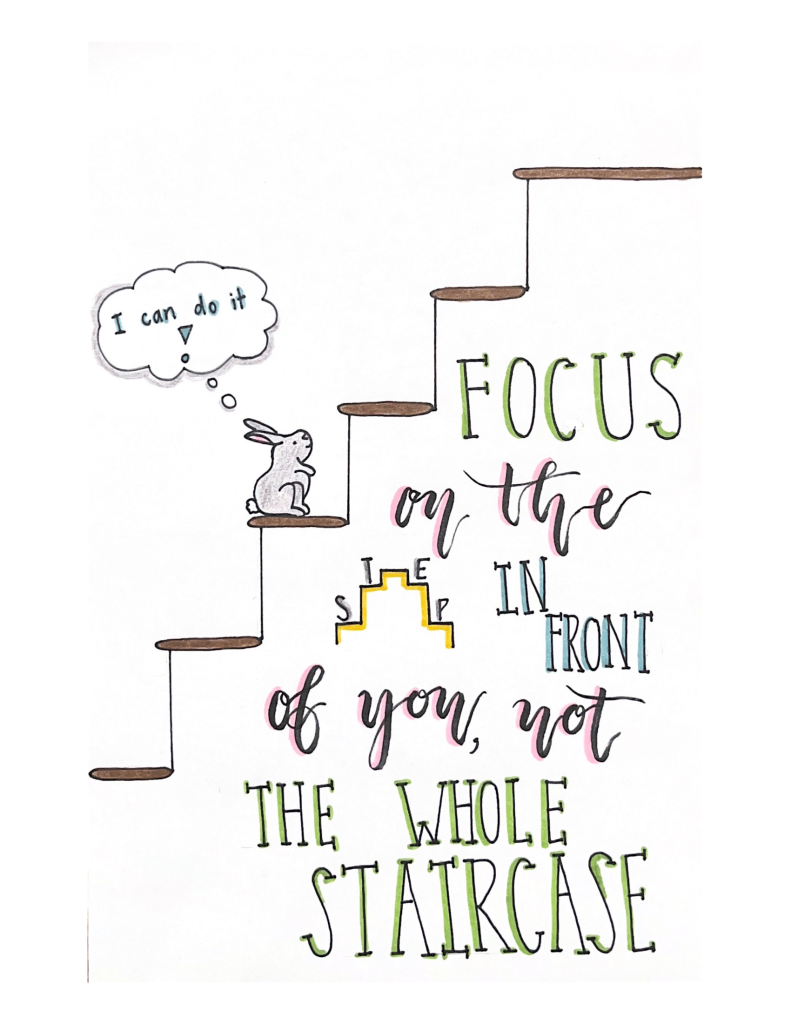 I can do it
FOCUS
on the
STEP IN
FRONT
of you, not
THE WHOLE
STAIRCASE